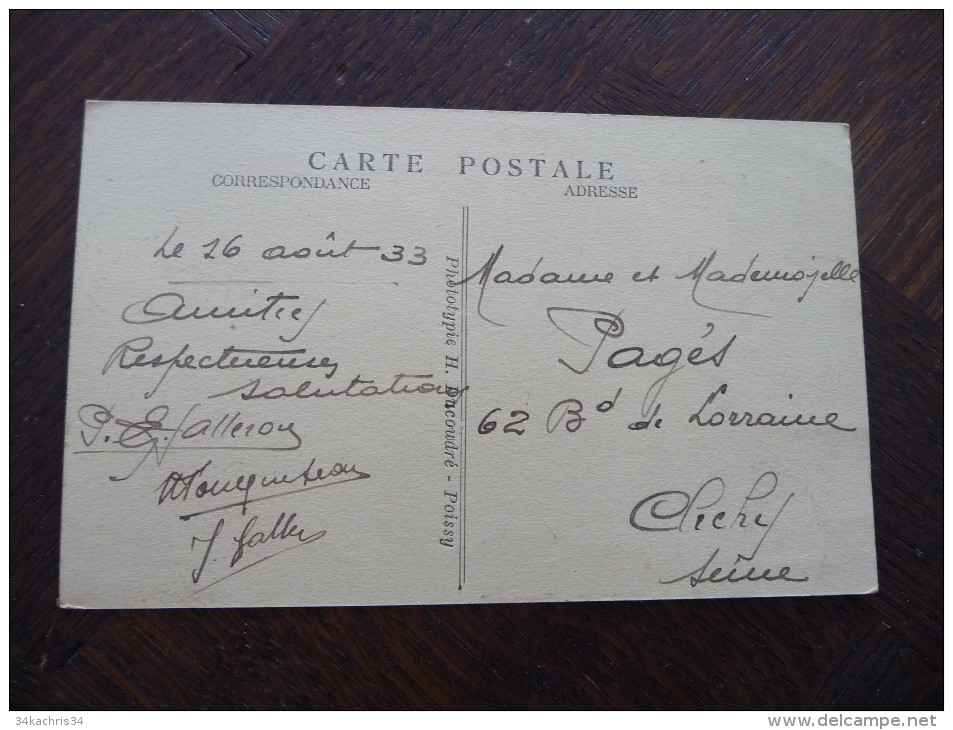 CARTE POSTALE
CORRESPONDANCE
ADRESSE
Le 26 août 33
Amitiés
Respectueuses
salutations
Photolypie H. Ducoudré - Poissy
Madame et Mademojelle
Pagés
62 Bd de Lorraine
Clichy
Seine
34kachris34
www.delcampe.net